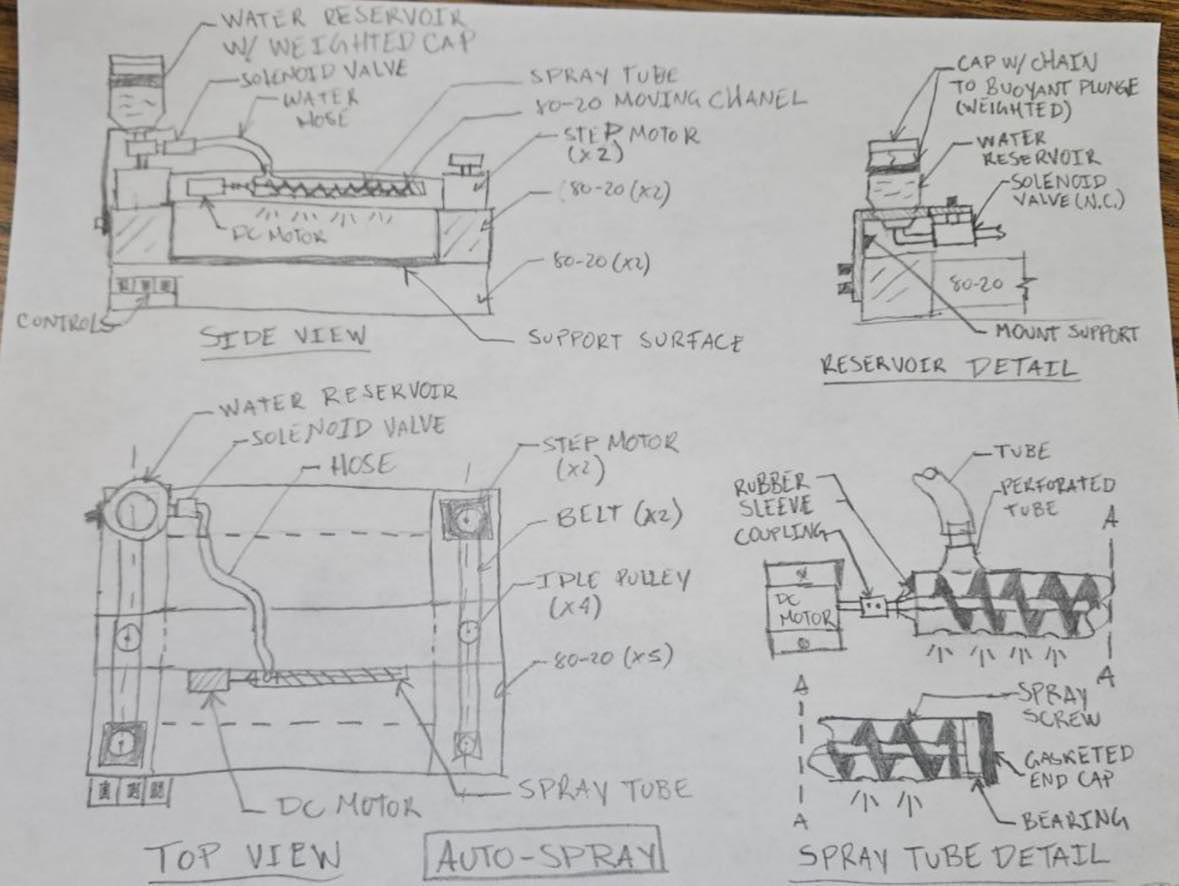 WATER RESERVOIR
W/ WEIGHTED CAP
SOLENOID VALVE
WATER
HOSE
SPRAY TUBE
80-20 MOVING CHANEL
STEP MOTOR
(X2)
80-20 (X2)
DC MOTOR
80-20 (X2)
CONTROLS
SUPPORT SURFACE
SIDE VIEW
CAP W/ CHAIN
TO BUOYANT PLUNGE
(WEIGHTED)
WATER
RESERVOIR
SOLENOID
VALVE (N.C.)
80-20
MOUNT SUPPORT
RESERVOIR DETAIL
WATER RESERVOIR
SOLENOID VALVE
HOSE
STEP MOTOR
(X2)
BELT (X2)
IDLE PULLEY
(X4)
80-20 (X5)
SPRAY TUBE
DC MOTOR
TOP VIEW
AUTO-SPRAY
TUBE
RUBBER
SLEEVE
COUPLING
PERFORATED
TUBE
A
DC
MOTOR
A
A
SPRAY
SCREW
GASKETED
END CAP
A
BEARING
SPRAY TUBE DETAIL